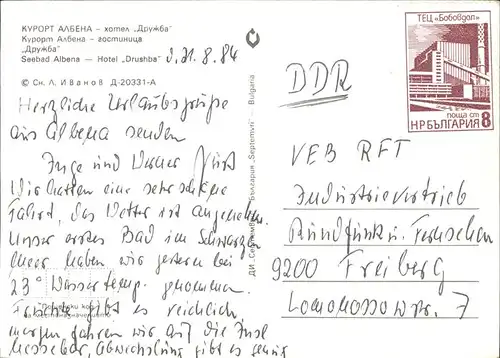 КУРОРТ АЛБЕНА – хотел „Дружба“
Курорт Албена – гостиница
„Дружба“
Seebad Albena – Hotel „Drushba“
d. 31.8.84
© Сн. Л. Иванов Д-20331-А
Herzliche Urlaubsgrüße
aus Albena senden
Inge und Werner
Wir hatten eine sehr schöne
Fahrt, das Wetter ist angenehm.
Unser erstes Bad im Schwarzen
Meer haben wir gestern bei
23° Wassertemp. genommen.
Früchte gibt es reichlich,
morgen fahren wir auf die Insel
Nessebar, Abwechslung gibt es genug
Пощенски код
ДИ „Септември“ България „Septemvri“ Bulgaria
ТЕЦ „Бобовдол“
поща ст 8
НР БЪЛГАРИЯ
DDR
VEB RFT
Industrievertrieb
Rundfunk u. Fernsehen
9200 Freiberg
Lomonossowstr. 7